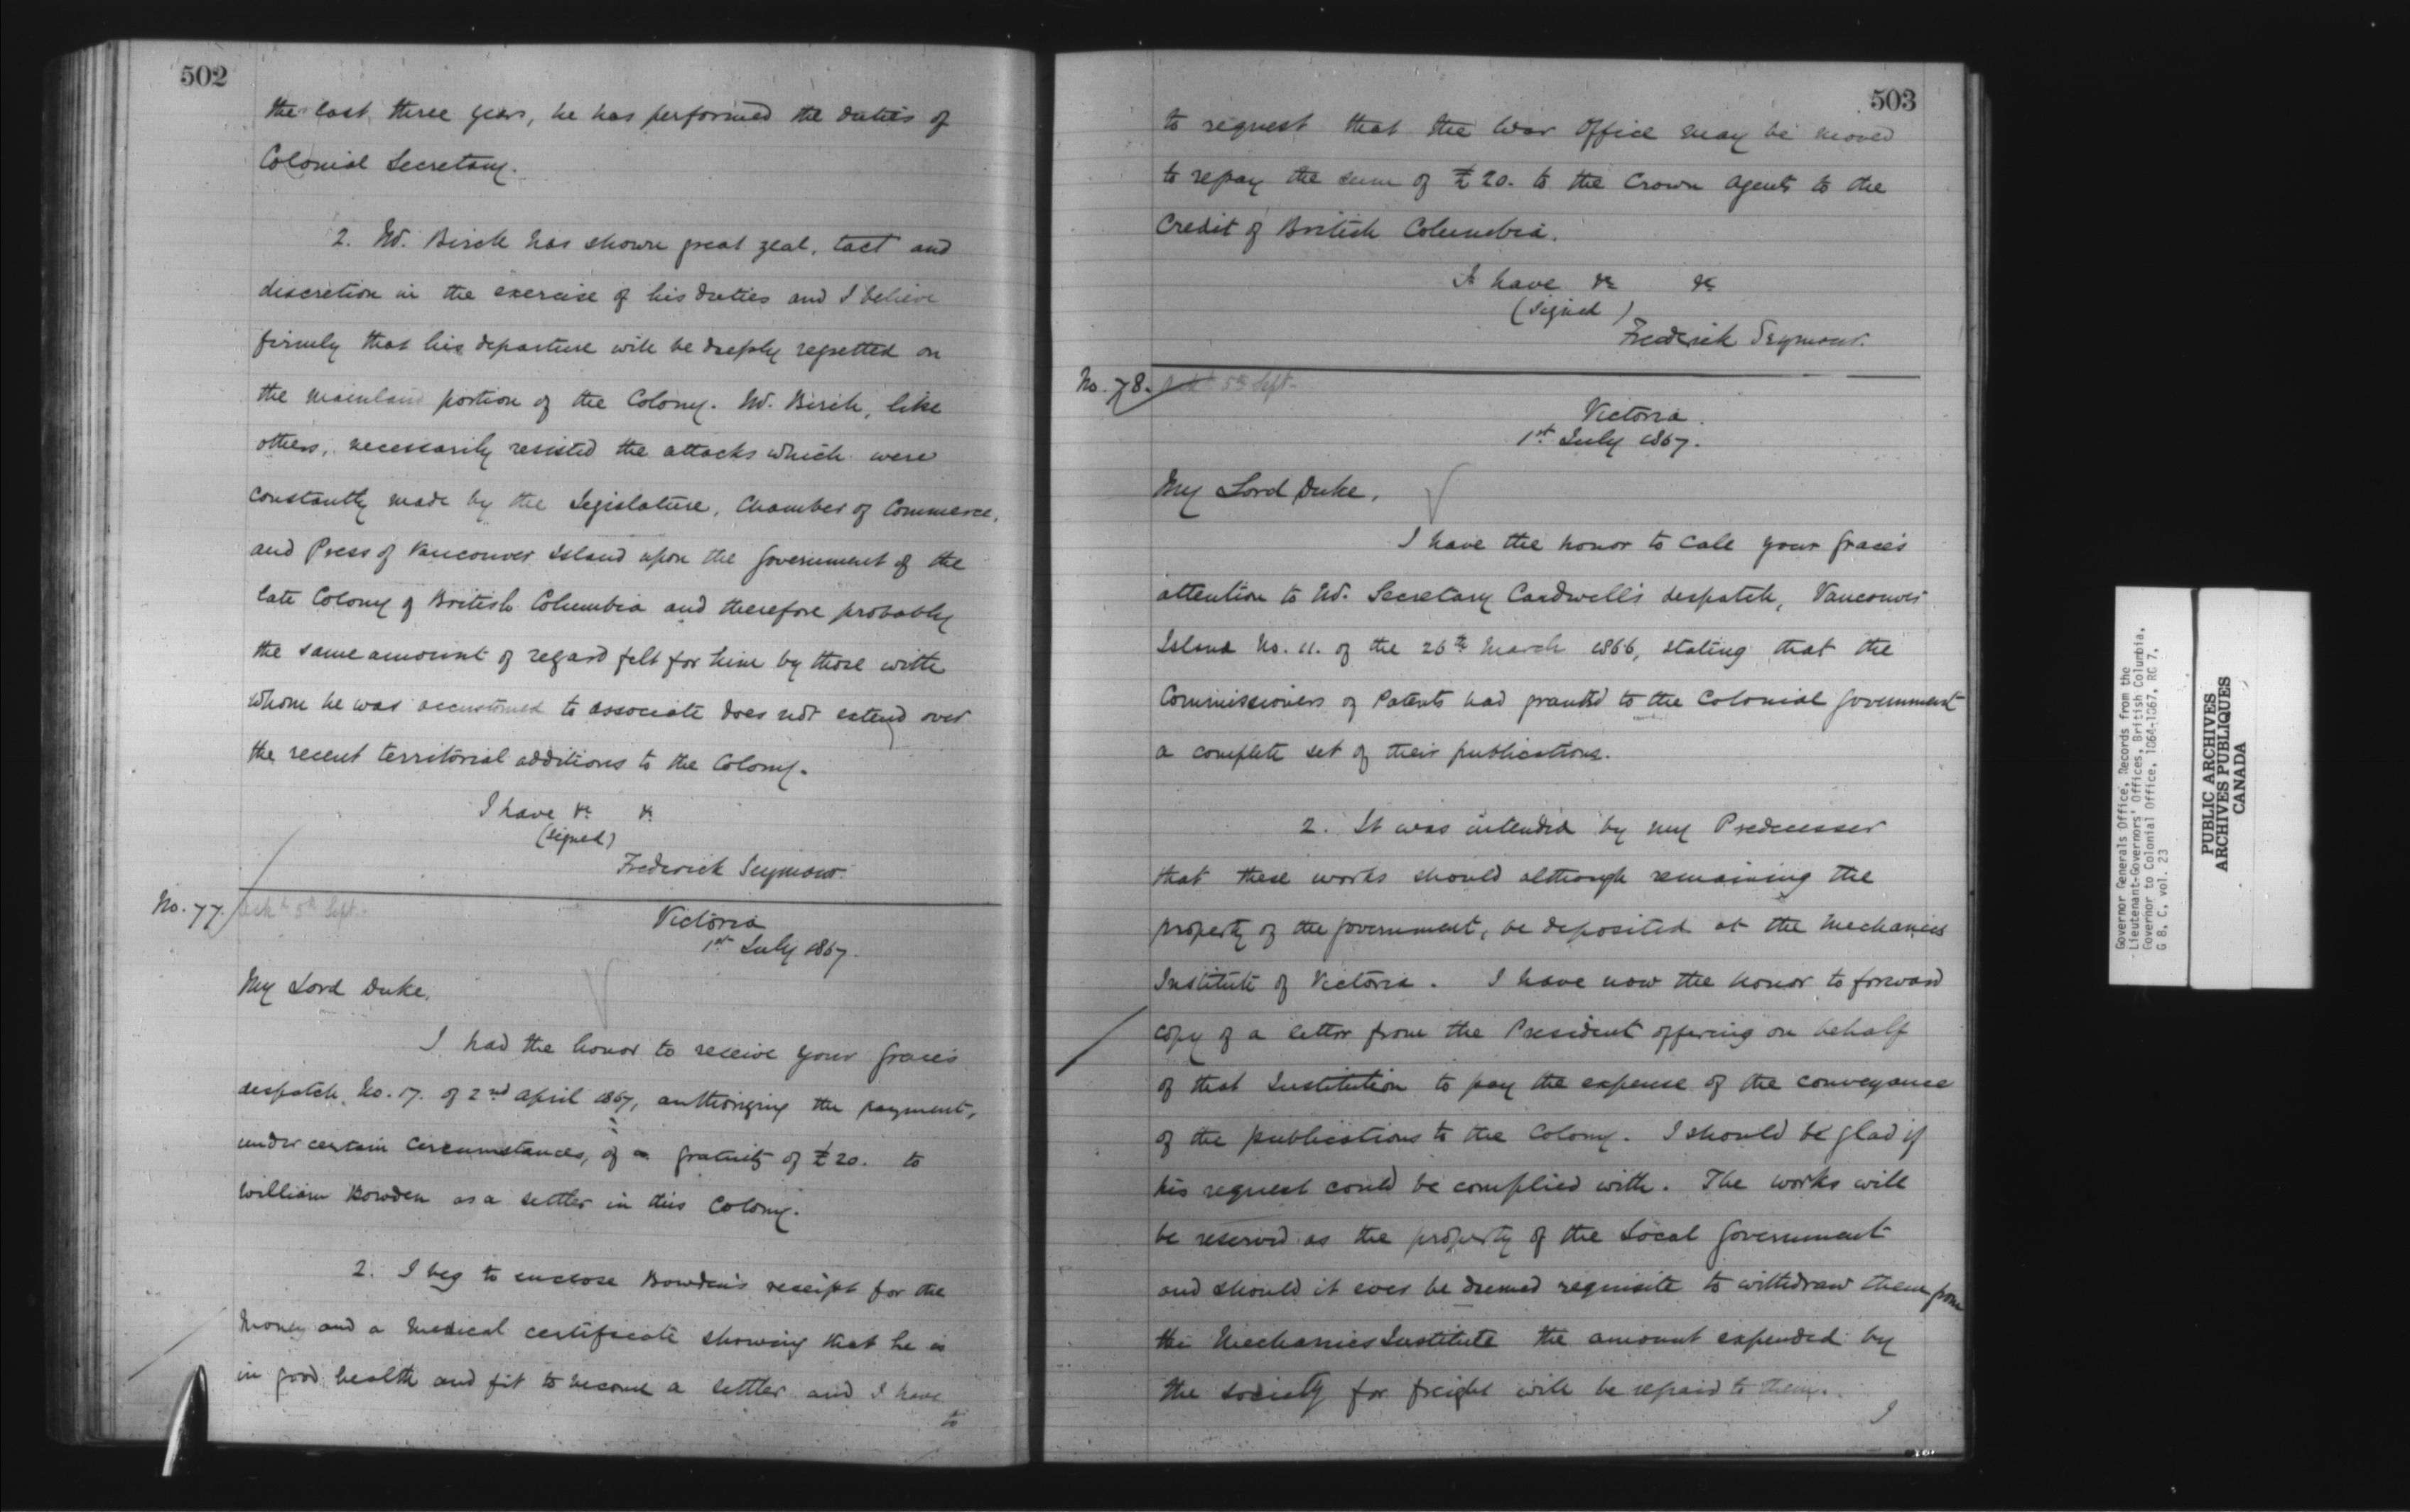 502
the last three years, he has performed the duties of
Colonial Secretary.
2. Mr. Birch has shown great zeal, tact and
discretion in the exercise of his duties and I believe
firmly that his departure will be deeply regretted on
the mainland portion of the Colony. Mr. Birch, like
others, necessarily resisted the attacks which were
constantly made by the Legislature, Chamber of Commerce,
and Press of Vancouver Island upon the Government of the
late Colony of British Columbia and therefore probably
the same amount of regard felt for him by those with
whom he was accustomed to associate does not extend over
the recent territorial additions to the Colony.
I have &c &c
(signed)
Frederick Seymour.
No. 77. Ackd 5th Sept.
Victoria
1st July 1867.
My Lord Duke,
I had the honor to receive your Grace's
despatch No. 17. of 2nd April 1867, authorizing the payment,
under certain circumstances, of a gratuity of £20. to
William Bowden as a settler in this Colony.
2. I beg to enclose Bowden's receipt for the
money and a medical certificate showing that he is
in good health and fit to become a settler and I have
to
503
to request that the War Office may be moved
to repay the sum of £20. to the Crown Agents to the
Credit of British Columbia.
I have &c &c
(signed)
Frederick Seymour.
No. 78. Ackd 5th Sept.
Victoria.
1st July 1867.
My Lord Duke,
I have the honor to call your Grace's
attention to Mr. Secretary Cardwell's despatch, Vancouver
Island No. 11. of the 26th March 1866, stating that the
Commissioners of Patents had granted to the Colonial Government
a complete set of their publications.
2. It was intended by my Predecessor
that these works should although remaining the
property of the Government, be deposited at the Mechanics
Institute of Victoria. I have now the honor to forward
copy of a letter from the President offering on behalf
of that Institution to pay the expense of the conveyance
of the publications to the Colony. I should be glad if
his request could be complied with. The works will
be reserved as the property of the Local Government
and should it ever be deemed requisite to withdraw them from
the Mechanics Institute the amount expended by
the society for freight will be repaid to them.
I
Governor Generals Office, Records from the
Lieutenant-Governors' Offices, British Columbia,
Governor to Colonial Office, 1864-1867, RG 7,
G 8, C, vol. 23
PUBLIC ARCHIVES
ARCHIVES PUBLIQUES
CANADA